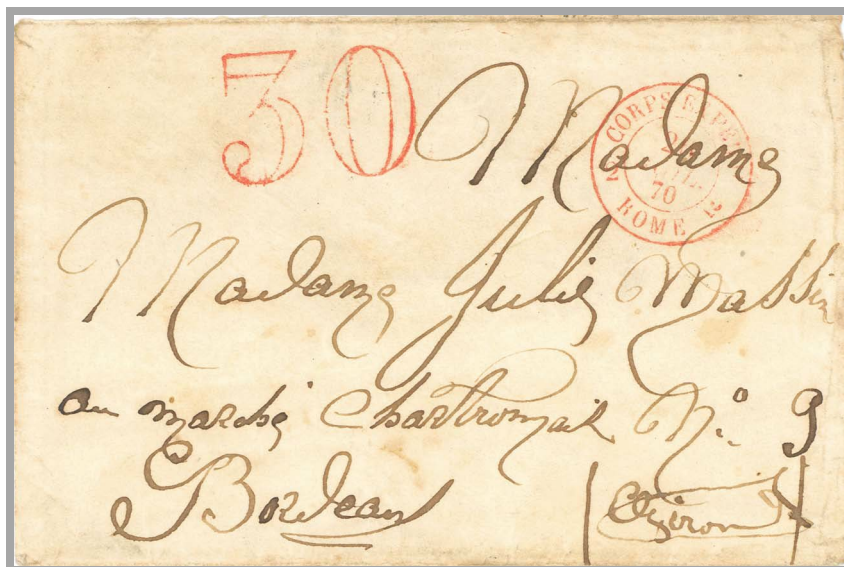 30
CORPS EXP
2
70
ROME
Madame
Madame Julie Massin
au marché Chartronnais N.° 9
Bordeaux
(Gironde)